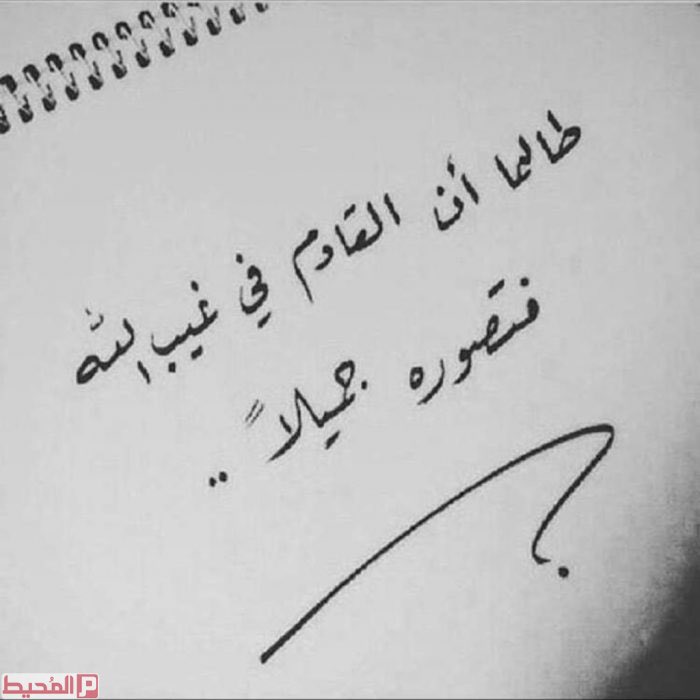 طالما أن القادم في غيب الله
فتصوره جميلاً ..
المُحيط